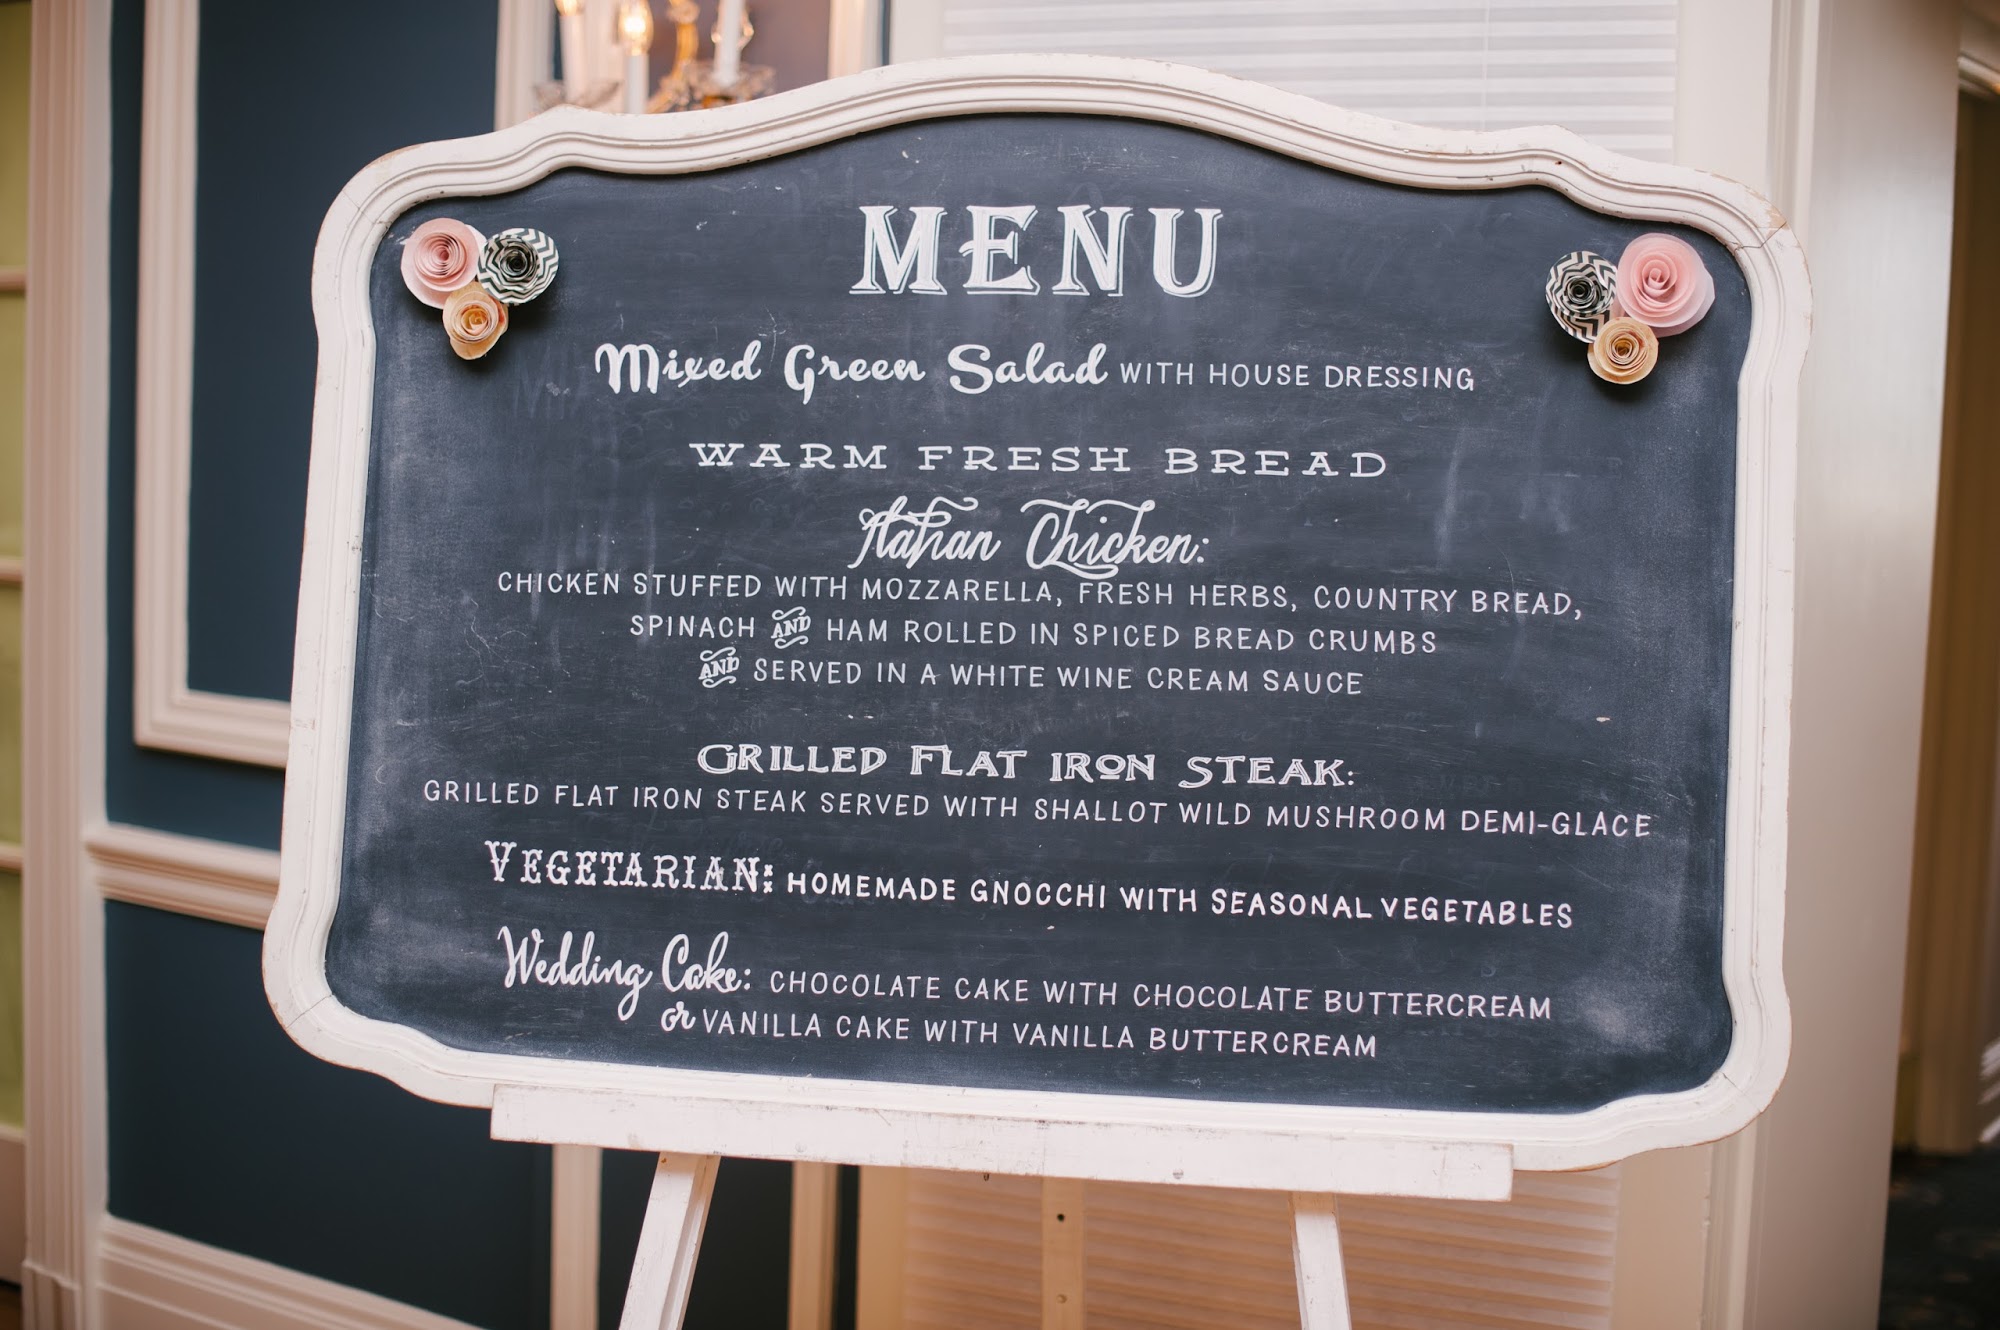 MENU
Mixed Green Salad WITH HOUSE DRESSING
WARM FRESH BREAD
Italian Chicken:
CHICKEN STUFFED WITH MOZZARELLA, FRESH HERBS, COUNTRY BREAD,
SPINACH AND HAM ROLLED IN SPICED BREAD CRUMBS
AND SERVED IN A WHITE WINE CREAM SAUCE
GRILLED FLAT IRON STEAK:
GRILLED FLAT IRON STEAK SERVED WITH SHALLOT WILD MUSHROOM DEMI-GLACE
VEGETARIAN: HOMEMADE GNOCCHI WITH SEASONAL VEGETABLES
Wedding Cake: CHOCOLATE CAKE WITH CHOCOLATE BUTTERCREAM
or VANILLA CAKE WITH VANILLA BUTTERCREAM